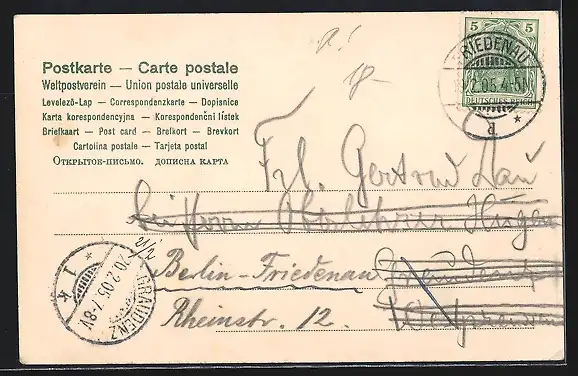 Postkarte — Carte postale
Weltpostverein — Union postale universelle
Levelező-Lap — Correspondenzkarte — Dopisnice
Karta korespondencyjna — Korespondenční lístek
Briefkaart — Post card — Brefkort — Brevkort
Cartolina postale — Tarjeta postal
Открытов-письмо. дописна карта
5 5
DEUTSCHES REICH
FRIEDENAU
2.05.4-5N
Frl. Gertrud
bei Herrn Oberlehrer
Berlin-Friedenau Graudenz
Rheinstr. 12. Westpreussen
GRAUDENZ
20.2.05.7-8V.
1 k